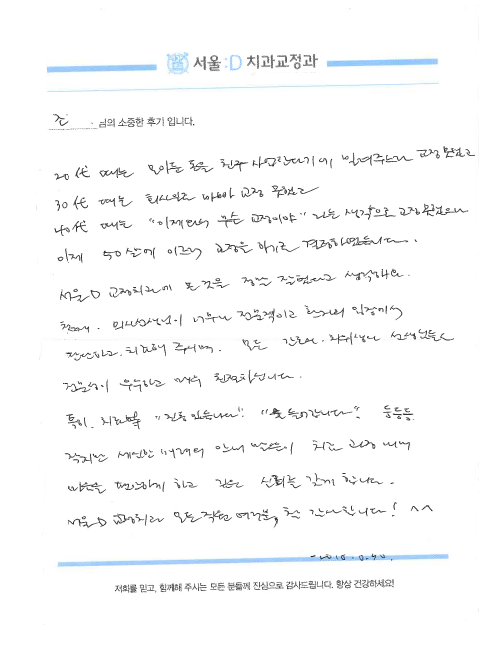 서울:D 치과교정과
조 님의 소중한 후기 입니다.
20代 때는 모아둔 돈을 친구 사업한다기에 빌려주느라 교정 못했고
30代 때는 회사일로 바빠 교정 못했고
40代 때는 "이제와서 무슨 교정이야" 라는 생각으로 교정못했으나
이제 50살에 이르러 교정을 하기로 결정하였습니다.
서울D 교정치과에 온 것을 정말 잘했다고 생각해요.
첫째. 의사선생님이 너무나 전문적이고 환자의 입장에서
판단하고, 치료해 주시며. 모든 간호사. 위생사 선생님들도
전문성이 우수하고 매우 친절하십니다.
특히. 치료때 "진동 있습니다" "물 들어갑니다" 등등등
작지만 세심한 배려의 안내 말씀이 치료 과정 내내
마음을 편안하게 하고 깊은 신뢰를 갖게 합니다.
서울D 교정치과 모든 직원 여러분, 참 감사합니다! ^^
저희를 믿고, 함께해 주시는 모든 분들께 진심으로 감사드립니다. 항상 건강하세요!